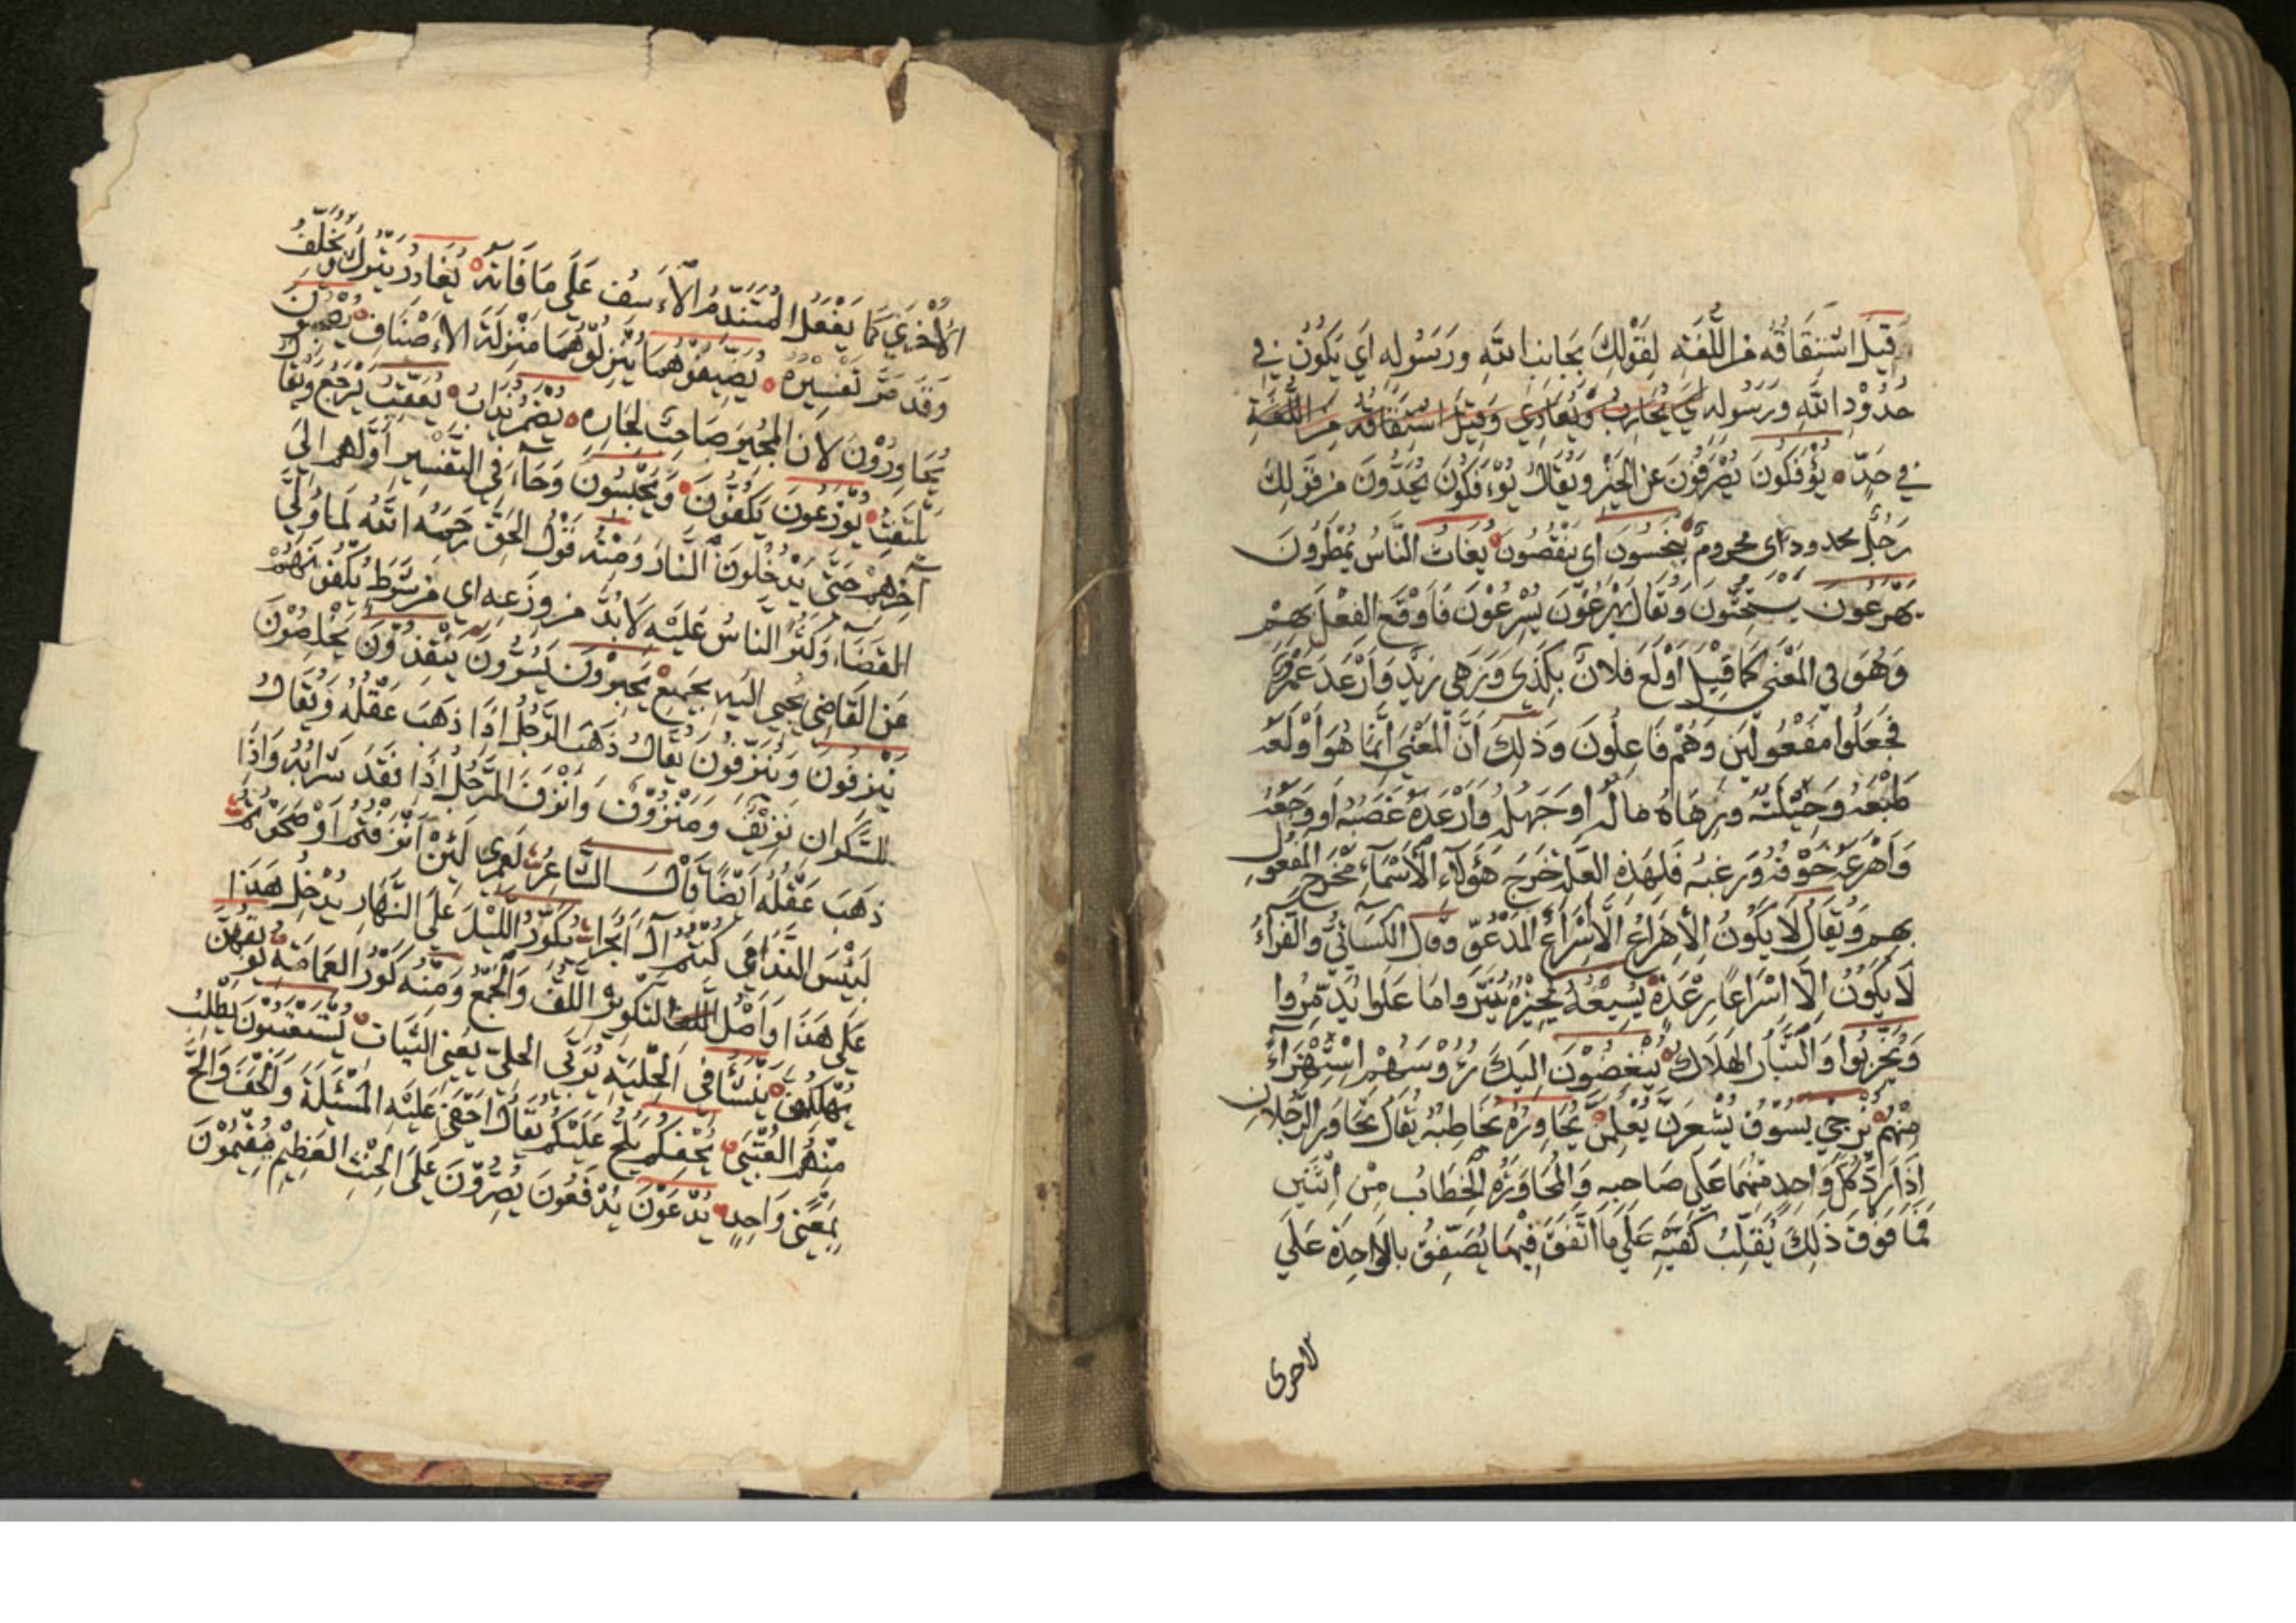 قِيلَ اشْتِقَاقُهُ مِنَ اللُّغَةِ لِقَوْلِكَ بِجَانِبِ اللهِ وَرَسُولِهِ اَي يَكُونُ فِي
حُدُودِ اللهِ وَرَسُولِهِ اي يُحَارِبُ وَيُعَادِي وَقِيلَ اشْتِقَاقُهُ مِنَ اللُّغَةِ
فِي حَدٍّ يُؤْفَكُونَ يُصْرَفُونَ عَنِ الْخَيْرِ وَيُقَالُ يُؤْفَكُونَ يُحَدُّونَ مِنْ قَوْلِكَ
رَجُلٌ محدود اى محرومٌ يُبْخَسُون اى يُنْقَصُونَ يُغَاثُ النَّاسُ يُمْطَرُونَ
يُهْرَعُونَ يُسْتَحَثُّونَ وَيُقَالُ يُهْرَعُونَ يُسْرِعُوْنَ فَاَوْقَعَ الفِعْلَ بِهِمْ
وَهُوَ فِي الْمَعْنَى كَمَا قِيْلَ اُوْلِعَ فُلَانٌ بِكَذَى وَزُهِي زَيْدٌ وَاُرْعِدَ عَمْرٌو
فَجُعِلُوا مَفْعُولِينَ وَهُمْ فَاعِلُونَ وَذَلِكَ اَنَّ الْمَعْنَى اِنَّمَا هُوَ اَوْلَعَهُ
طَبْعُهُ وَجِبِلَّتُهُ وَزَهَاهُ مَالُهُ اَو جَهْلُهُ وَاَرْعَدَهُ غَضَبُهُ اَو وَجَعُهُ
وَاَهْرَعَهُ خَوْفُهُ وَرعبُه فَلِهَذِهِ العِلَّةِ خَرَجَ هَؤُلَاءِ الْاَسْمَاءُ مَخْرَجَ المَفْعُولِ
بهم وَيُقَالُ لَا يَكُونُ الْاِهْرَاعُ الْاِسْرَاعُ الْمَدْعُوّ وَقَالَ الْكِسَائِيُّ وَالْفَرَّاءُ
لَا يَكُونُ اِلَّا اِسْرَاعًا بِرِعْدَةٍ يُسِيْغُهُ يُجِيْزُهُ يُتَبِّرُوا مَا عَلَوا يُدَمِّرُوا
وَيُخَرِّبُوا وَالتَّبَارُ الهَلَاكُ يُنْغِضُوْنَ اِلَيْكَ رُؤُوْسَهُمْ اِسْتِهْزَاءً
مِنْهُمْ يُزْجِي يَسُوْقُ يُشْعِرَنَّ يُعْلِمَنَّ يُحَاوِرُهُ يُخَاطِبُهُ يُقَالُ تَحَاوَرَ الرَّجُلَانِ
اِذَا رَدَّ كُلُّ وَاحِدٍ مِنْهُمَا عَلَى صَاحِبِهِ وَالْمُحَاوَرَةُ الْخِطَابُ مِنْ اِثْنَيْنِ
فَمَا فَوْقَ ذَلِكَ يُقَلِّبُ كَفَّيْهِ عَلَى مَا اَنْفَقَ فِيهَا يُصَفِّقُ بِالْوَاحِدَةِ عَلَى
الاخرى
الْاُخْرَى كَمَا يَفْعَلُ المُتَنَدِّمُ الْآسِفُ عَلَى مَا فَاتَهُ يُغَادِرُ يَتْرُكُ وَيُخَلِّفُ
وَقَدْ مَرَّ تَفْسِيْرُهُ يُضَيِّفُوْهُمَا يُنْزِلُوْهُمَا مَنْزِلَةَ الْاَضْيَافِ يُصْحَبُوْنَ
يُجَاوَرُوْنَ لِاَنَّ المُجِيْرَ صَاحِبٌ لِجَارِهِ يُعَقِّبْ يَرْجِعْ وَيُقَالُ
يَلْتَفِتْ يُوْزَعُونَ يُكَفُّوْنَ وَيُحْبَسُوْنَ وَجَاءَ فِي التَّفْسِيْرِ اَوَّلُهُمْ اِلَى
اٰخِرِهِمْ حَتَّى يَدْخُلُوْنَ النَّارَ وَمِنْهُ قَوْلُ رَحِمَهُ اللهُ لَمَّا وُلِّيَ
القَضَاءَ وَكَثُرَ النَّاسُ عَلَيْهِ لَا بُدَّ مِنْ وَزَعَةٍ اى مِنْ شُرَطٍ يَكُفُّوْنَهُمْ
عَنِ القَاضِي يُجْبَى اِلَيْهِ يُجْمَعُ يُنْقِذُوْنَ يُخَلِّصُوْنَ
يُنْزِفُونَ وَيُنْزَفُوْنَ يُقَالُ نَزَفَ الرَّجُلُ اِذَا ذَهَبَ عَقْلُهُ وَيُقَالُ
لِلسَّكْرَانِ نَزِيْفٌ وَمَنْزُوْفٌ وَاَنْزَفَ الرَّجُلُ اِذَا نَفَدَ شَرَابُهُ وَاِذَا
ذَهَبَ عَقْلُهُ اَيْضًا قَالَ الشَّاعِرُ لَعَمْرِي لَئِنْ اَنْزَفْتُمُ اَوْ صَحَوْتُمُ
لَبِئْسَ النَّدَامَى كُنْتُمُ اٰلَ اَبْجَرَا يُكَوِّرُ اللَّيْلَ عَلَى النَّهَارِ يُدْخِلُ هَذَا
عَلَى هَذَا وَاَصْلُ التَّكْوِيْرِ اللَّفُّ وَالْجَمْعُ وَمِنْهُ كَوْرُ العِمَامَةِ يُوْبِقْهُنَّ
يُهْلِكْهُنَّ يُنَشَّأُ فِي الْحِلْيَةِ يُرَبَّى فِي الحلي يَعْنِي البَنَات يُسْتَعْتَبُوْنَ يُطْلَبُ
مِنْهُمُ العُتْبَى يُحْفِكُمْ يُلِحَّ عَلَيْكُمْ يُقَالُ اَحْفَى عَلَيْهِ الْمَسْئَلَةَ وَاَلْحَفَ وَاَلَحَّ
بِمَعْنًى وَاحِدٍ يُدَعُّوْنَ يُدْفَعُونَ يُصِرُّوْنَ عَلَى الْحِنْثِ العَظِيْمِ مُقِيْمُوْنَ